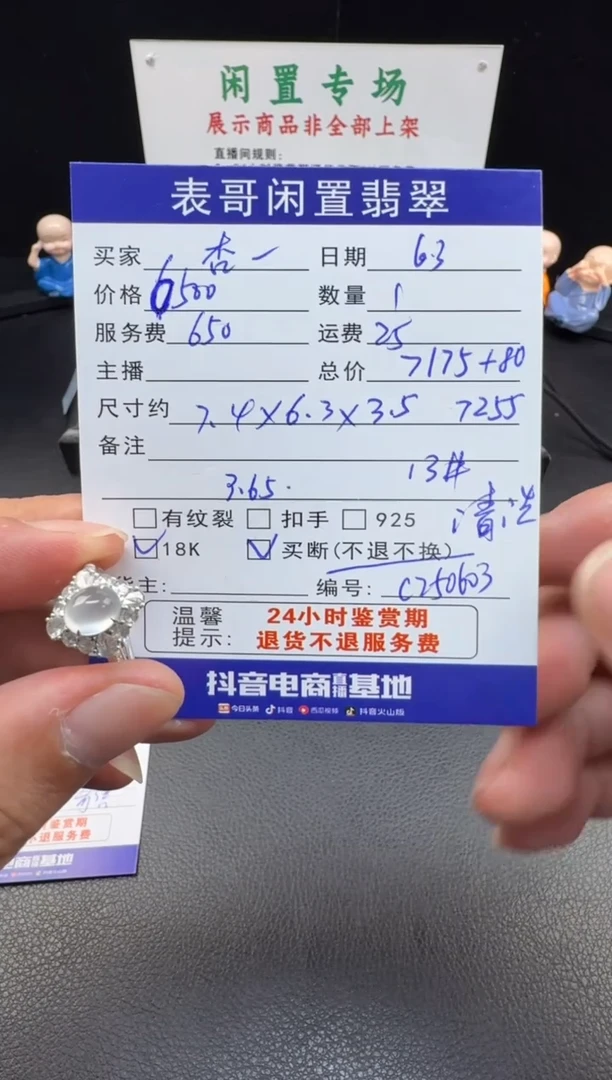 闲置专场
展示商品非全部上架
直播间规则:
表哥闲置翡翠
买家 杏一 日期 6.3
价格 6500 数量 1
服务费 650 运费 25
主播 总价 7175+80
尺寸约 7.4×6.3×3.5 7255
备注
13#
3.65.
□有纹裂 □ 扣手 □ 925 清洗
☑18K ☑ 买断(不退不换)
货主: 编号: C250603
温馨提示: 24小时鉴赏期
退货不退服务费
抖音电商直播基地
今日头条 抖音 西瓜视频 抖音火山版
鉴赏期
不退服务费
电商直播基地